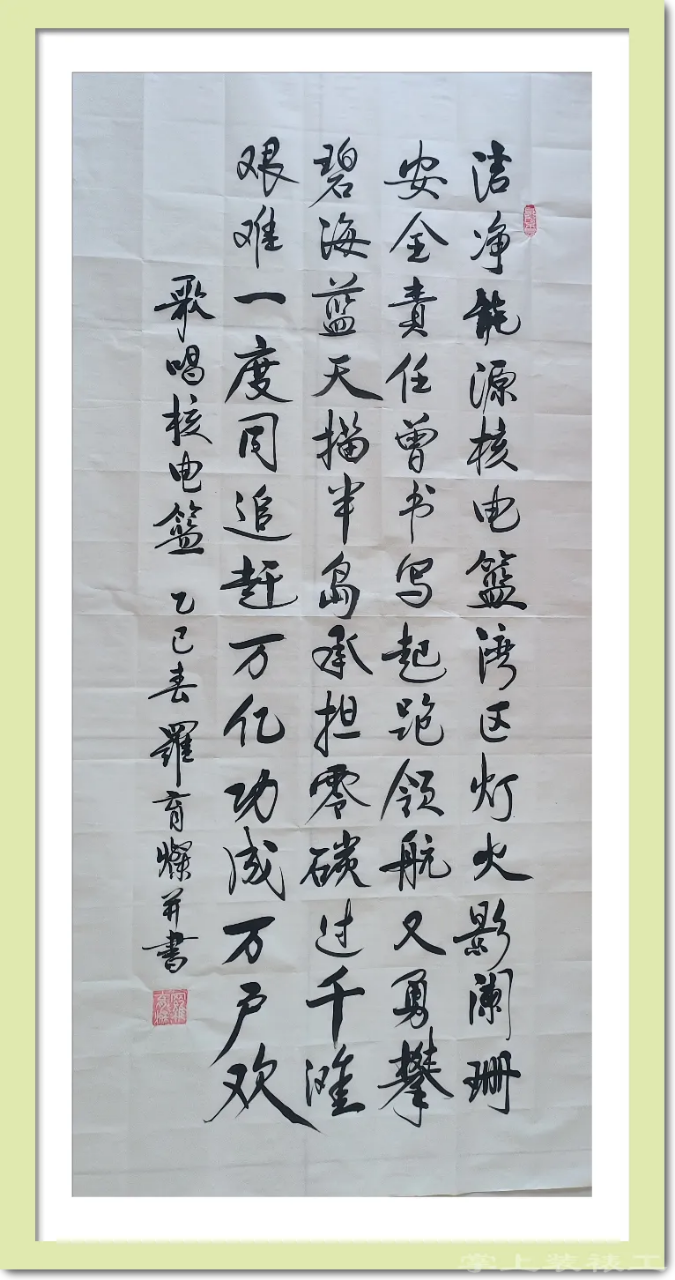 洁净能源核电篮湾区灯火影阑珊
安全責任曾书写起跑领航又勇攀
碧海蓝天描半岛承担零碳过千滩
艰难一度同追赶万亿功成万户欢
歌唱核电篮 乙巳春羅育燦并書
掌上装裱工